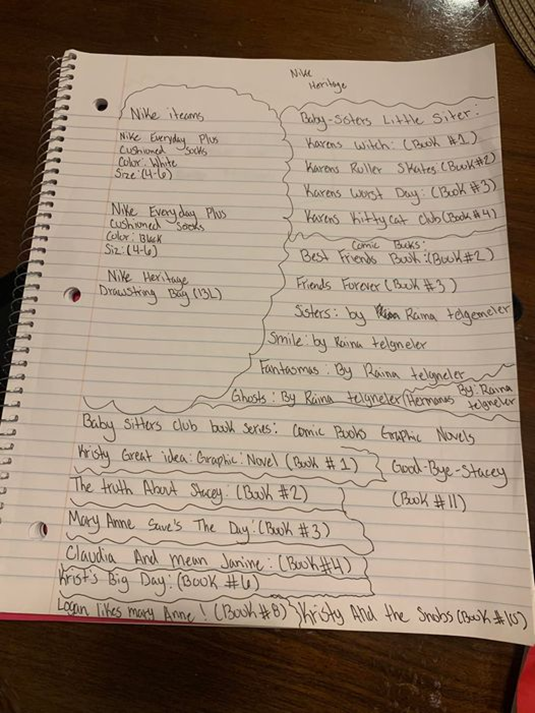 Nike
Heritage
Nike iteams
Nike Everyday Plus
Cushioned Socks
Color: White
Size: (4-6)
Nike Everyday Plus
Cushioned Socks
Color: Black
Siz: (4-6)
Nike Heritage
Drawstring Bag (13L)
Baby-Sisters Little Siter:
Karens Witch: (Book #1)
Karens Ruller Skates: (Book #2)
Karens Worst Day: (Book #3)
Karens Kittycat Club (Book #4)
Comic Books:
Best Friends Book: (Book #2)
Friends Forever (Book #3)
Sisters: by Raina telgemeler
Smile: by Raina telgmeler
Fantasmas: By Raina telgmeler
Ghosts: By Raina telgmeler
Hermanas By: Raina
telgmeler
Baby Sitters club book series: Comic Books Graphic Novels
Kristy Great idea: Graphic: Novel (Book #1)
Good-Bye-Stacey
(Book #11)
The truth About Stacey: (Book #2)
Mary Anne Save's The Day: (Book #3)
Claudia And mean Janine: (Book #4)
Krist's Big Day: (Book #6)
Logan likes mary Anne! (Book #8)
Kristy And the Snobs (Book #10)